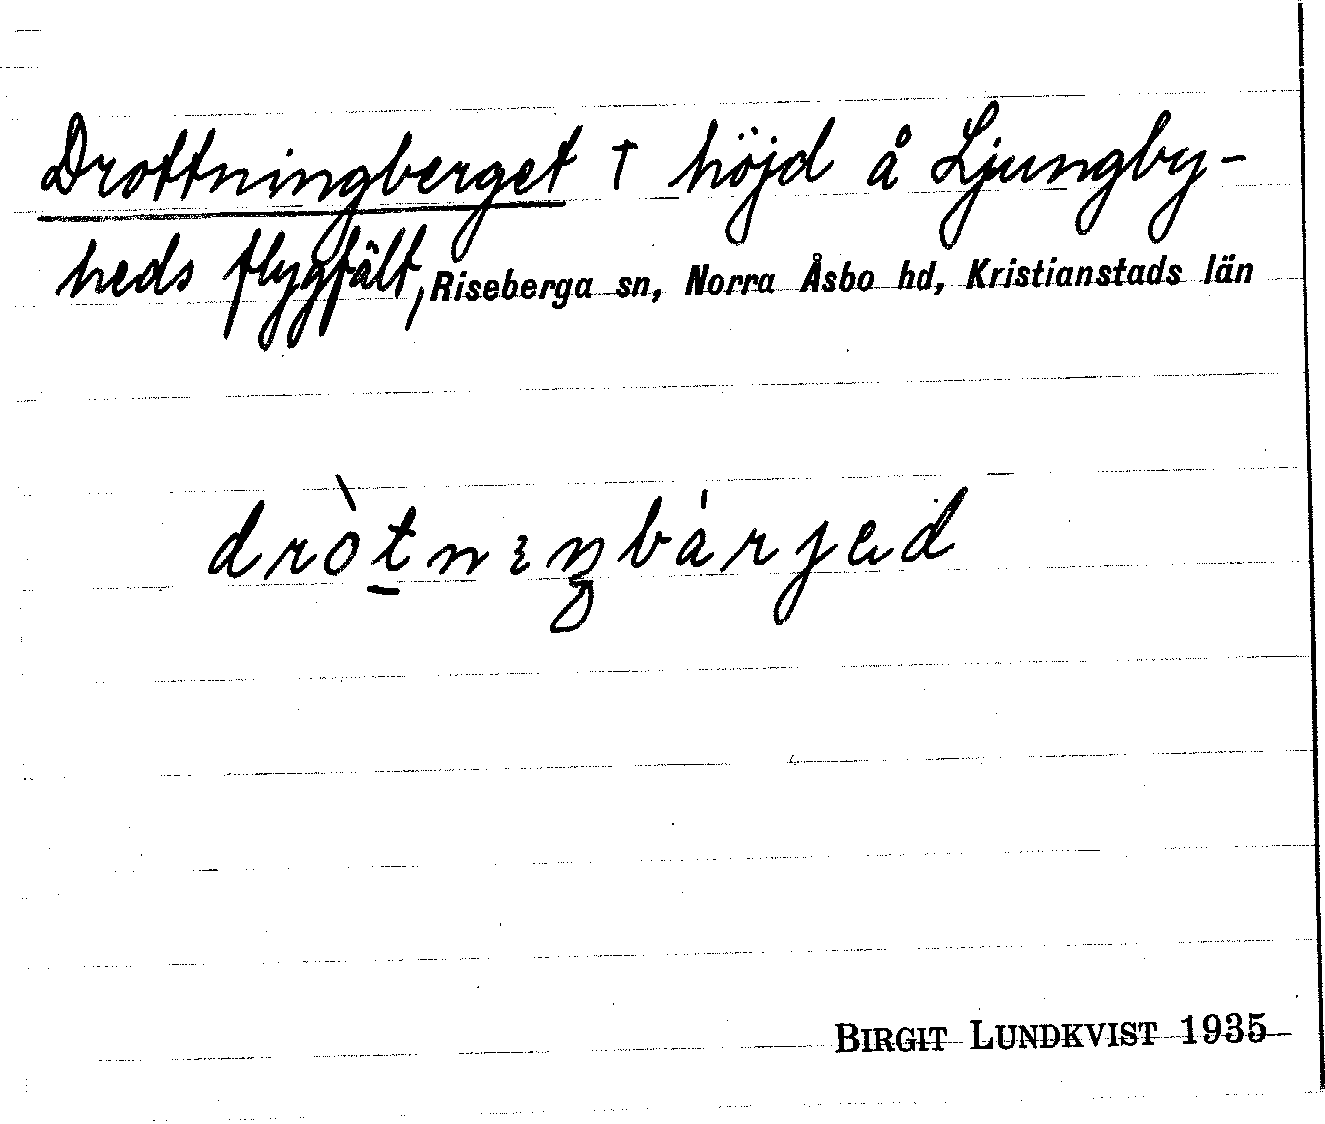 Drottningberget † höjd å Ljungby-
heds flygfält, Riseberga sn, Norra Åsbo hd, Kristianstads län
dròt̲nıŋbárjed
BIRGIT LUNDKVIST 1935